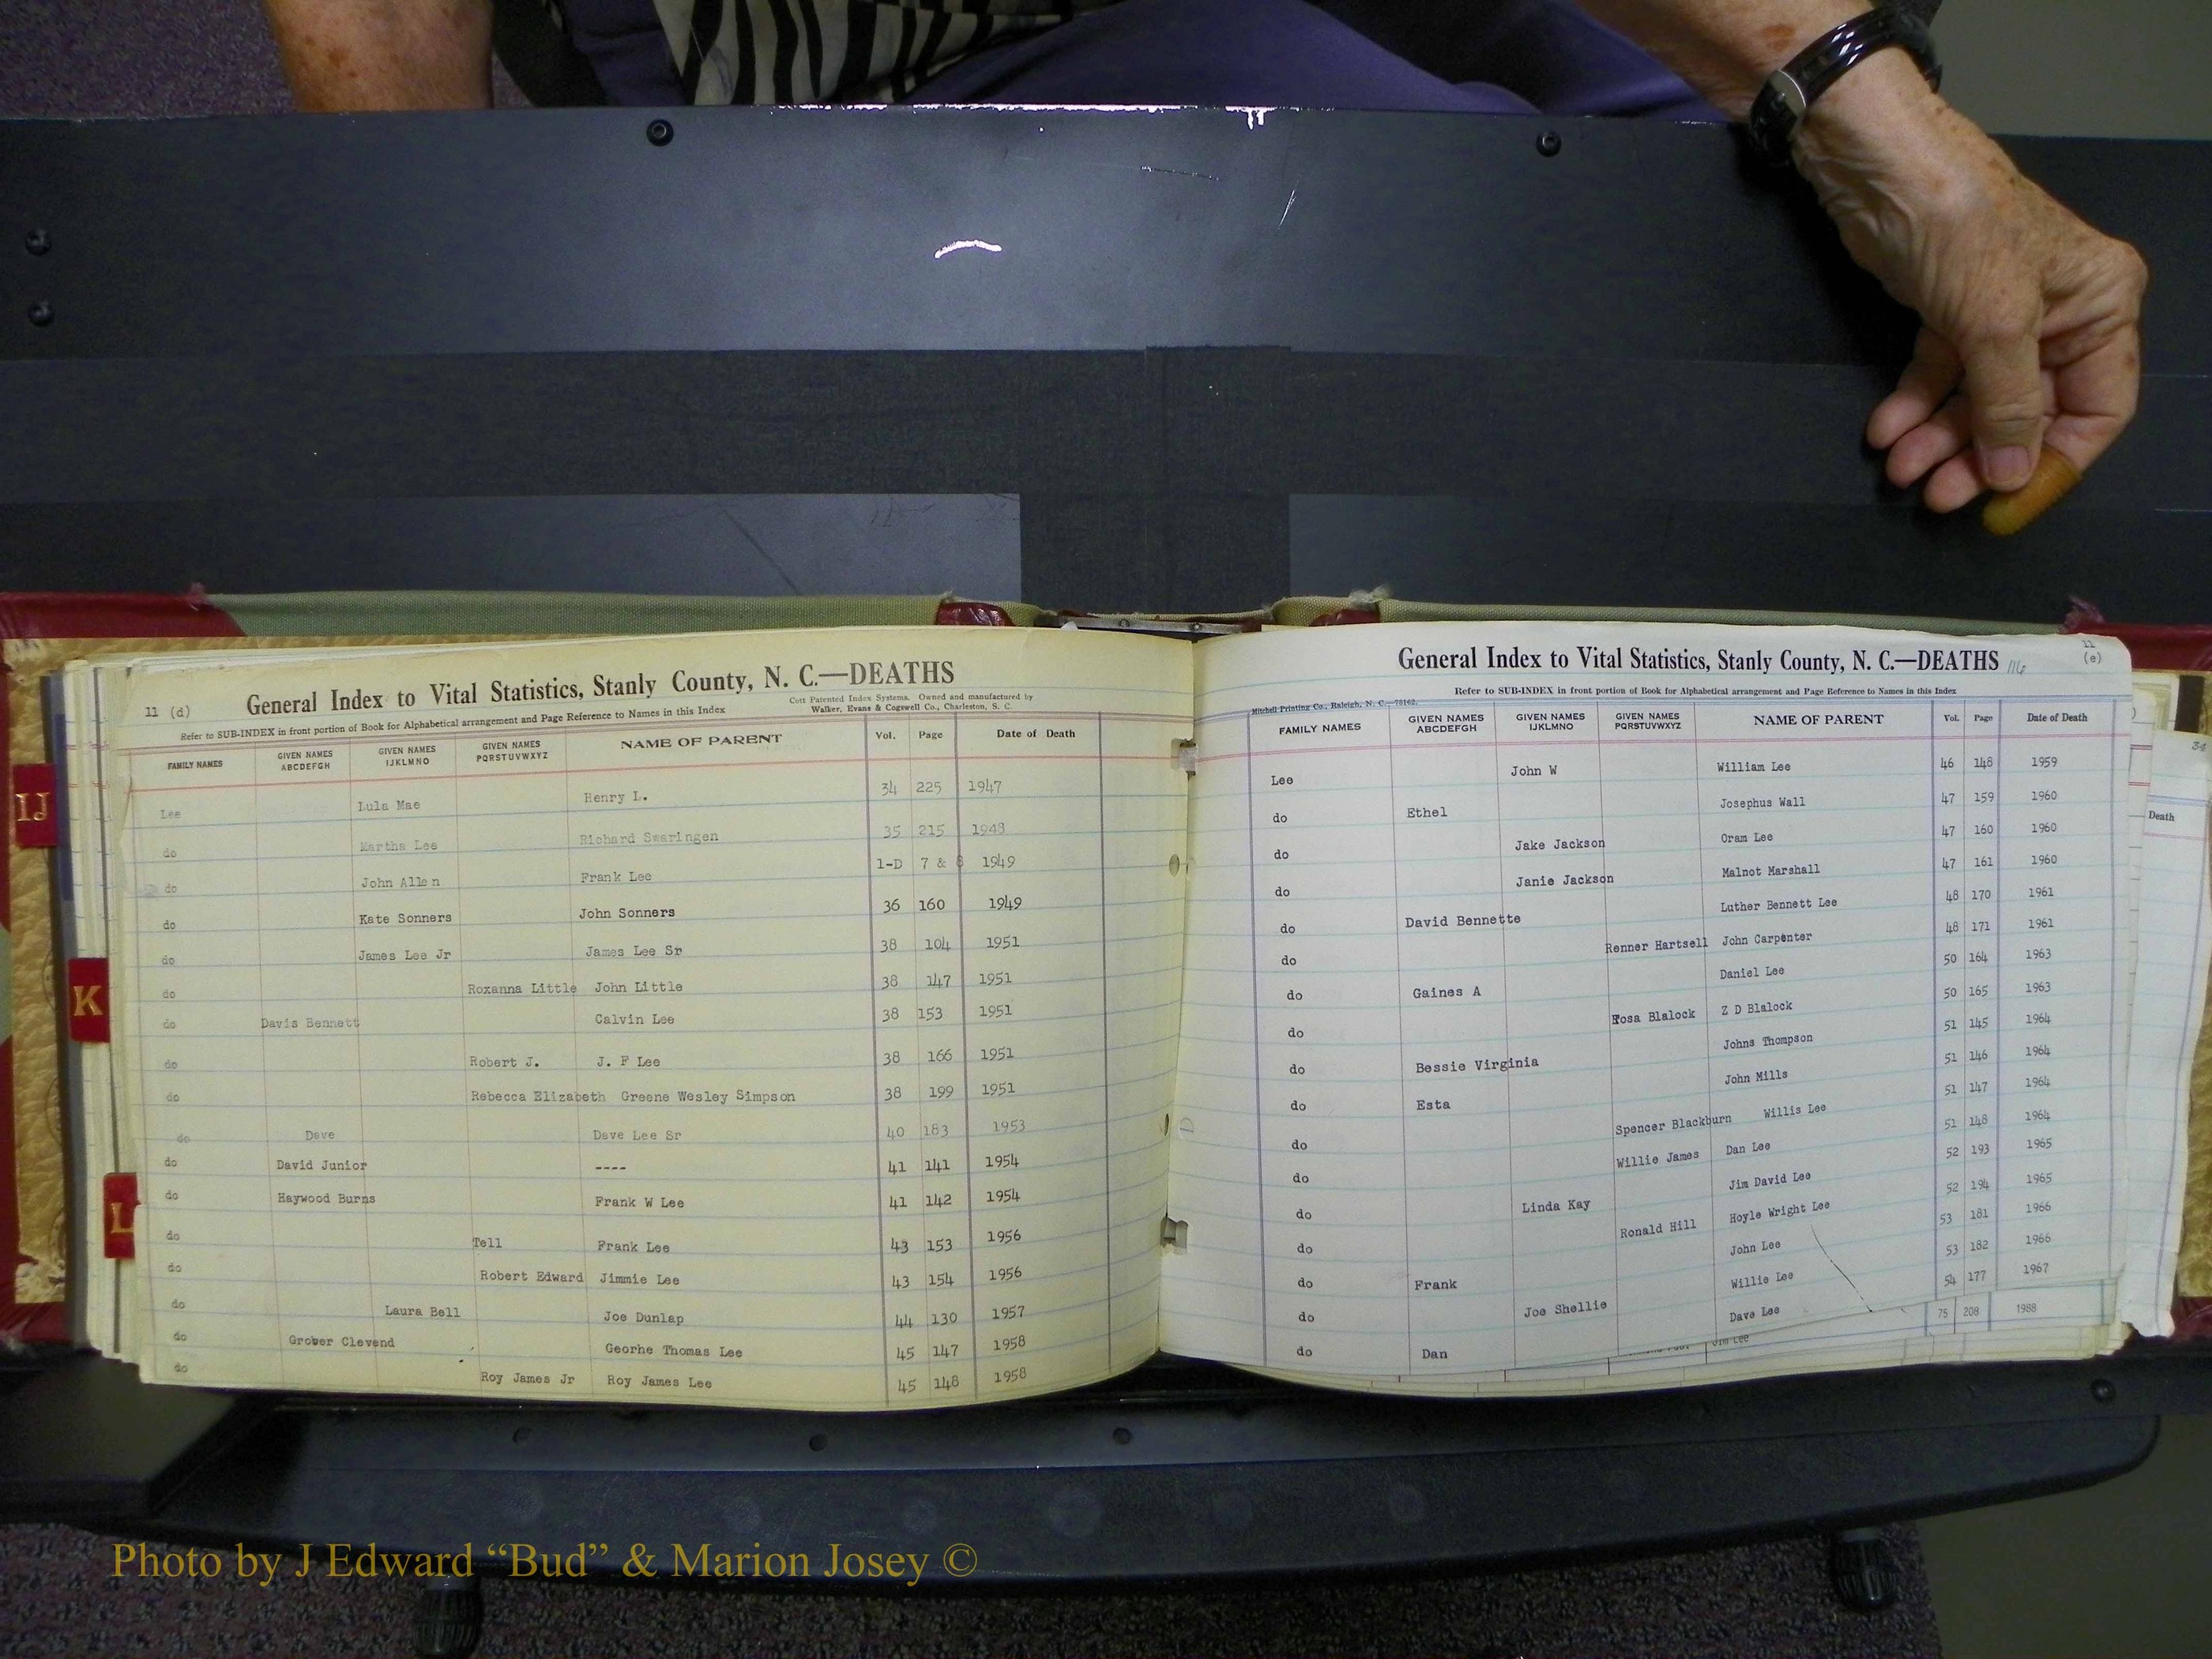 11 (d)
General Index to Vital Statistics, Stanly County, N. C.—DEATHS
Refer to SUB-INDEX in front portion of Book for Alphabetical arrangement and Page Reference to Names in this Index
Cott Patented Index Systems. Owned and manufactured by
Walker, Evans & Cogswell Co., Charleston, S. C.
FAMILY NAMES GIVEN NAMES ABCDEFGH GIVEN NAMES IJKLMNO GIVEN NAMES PQRSTUVWXYZ NAME OF PARENT Vol. Page Date of Death
Lee Lula Mae Henry L. 34 225 1947
do Martha Lee Richard Swaringen 35 215 1948
do John Allen Frank Lee 1-D 7 & 8 1949
do Kate Sonners John Sonners 36 160 1949
do James Lee Jr James Lee Sr 38 104 1951
do Roxanna Little John Little 38 147 1951
do Davis Bennett Calvin Lee 38 153 1951
do Robert J. J. F Lee 38 166 1951
do Rebecca Elizabeth Greene Wesley Simpson 38 199 1951
do Dave Dave Lee Sr 40 183 1953
do David Junior ---- 41 141 1954
do Haywood Burns Frank W Lee 41 142 1954
do Tell Frank Lee 43 153 1956
do Robert Edward Jimmie Lee 43 154 1956
do Laura Bell Joe Dunlap 44 130 1957
do Grober Clevend Georhe Thomas Lee 45 147 1958
do Roy James Jr Roy James Lee 45 148 1958
11
(e)
General Index to Vital Statistics, Stanly County, N. C.—DEATHS 116
Refer to SUB-INDEX in front portion of Book for Alphabetical arrangement and Page Reference to Names in this Index
Mitchell Printing Co., Raleigh, N. C.—78162.
FAMILY NAMES GIVEN NAMES ABCDEFGH GIVEN NAMES IJKLMNO GIVEN NAMES PQRSTUVWXYZ NAME OF PARENT Vol. Page Date of Death
Lee John W William Lee 46 148 1959
do Ethel Josephus Wall 47 159 1960
do Jake Jackson Oram Lee 47 160 1960
do Janie Jackson Malnot Marshall 47 161 1960
do David Bennette Luther Bennett Lee 48 170 1961
do Renner Hartsell John Carpenter 48 171 1961
do Gaines A Daniel Lee 50 164 1963
do Rosa Blalock Z D Blalock 50 165 1963
do Bessie Virginia Johns Thompson 51 145 1964
do Esta John Mills 51 146 1964
do Spencer Blackburn Willis Lee 51 147 1964
do Willie James Dan Lee 51 148 1964
do Linda Kay Jim David Lee 52 193 1965
do Ronald Hill Hoyle Wright Lee 52 194 1965
do Frank John Lee 53 181 1966
do Joe Shellie Willie Lee 53 182 1966
do Dan Dave Lee 54 177 1967
Jim Lee 75 208 1988
34
Death
IJ
K
L
Photo by J Edward “Bud” & Marion Josey ©